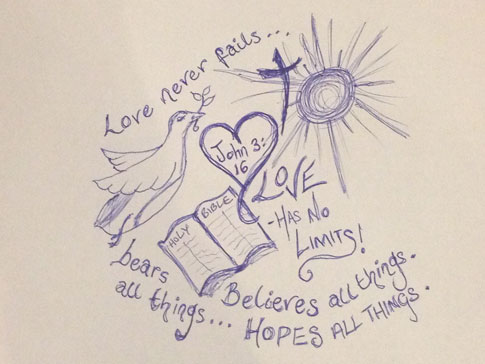 Love never fails...
John 3:
16
LOVE
-HAS NO
LIMITS!
HOLY BIBLE
bears
all things...
Believes all things.
HOPES ALL THINGS.